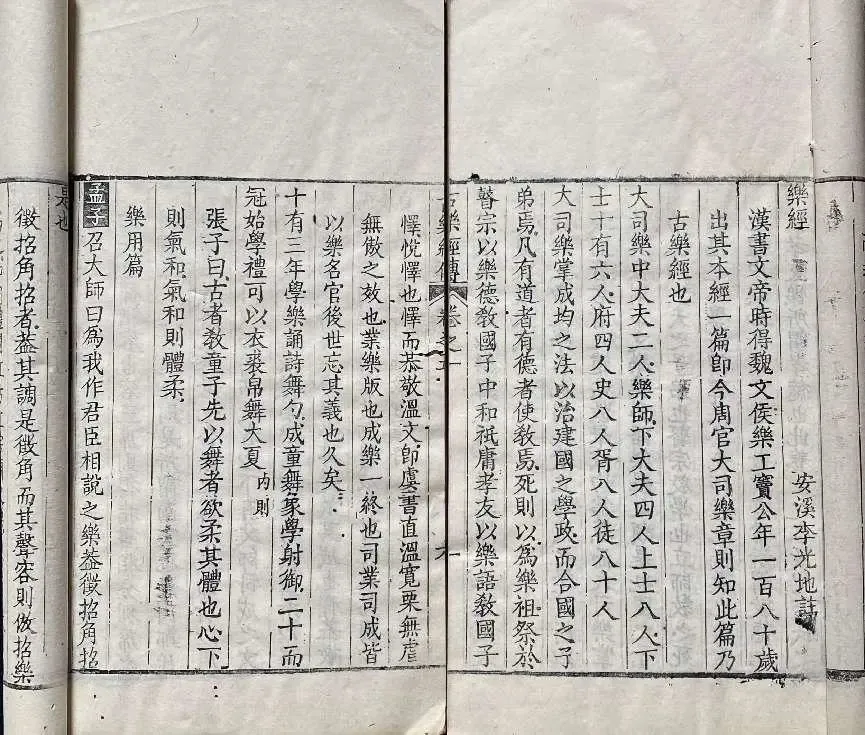 樂經
安溪李光地註
漢書文帝時得魏文侯樂工竇公年一百八十歲
出其本經一篇卽今周官大司樂章則知此篇乃
古樂經也
大司樂中大夫二人樂師下大夫四人上士八人下
士十有六人府四人史八人胥八人徒八十人
大司樂掌成均之法以治建國之學政而合國之子
弟焉凡有道者有德者使敎焉死則以爲樂祖祭於
瞽宗以樂德敎國子中和祗庸孝友以樂語敎國子
古樂經傳 卷之
懌悅懌也懌而恭敬溫文卽虞書直溫寬栗無虐
無傲之效也業樂版也成樂一終也司業司成皆
以樂名官後世忘其義也久矣
十有三年學樂誦詩舞勺成童舞象學射御二十而
冠始學禮可以衣裘帛舞大夏 內則
張子曰古者敎童子先以舞者欲柔其體也心下
則氣和氣和則體柔
樂用篇
孟子召大師曰爲我作君臣相說之樂蓋徵招角招
是也
徵招角招者蓋其調是徵角而其聲容則倣招樂